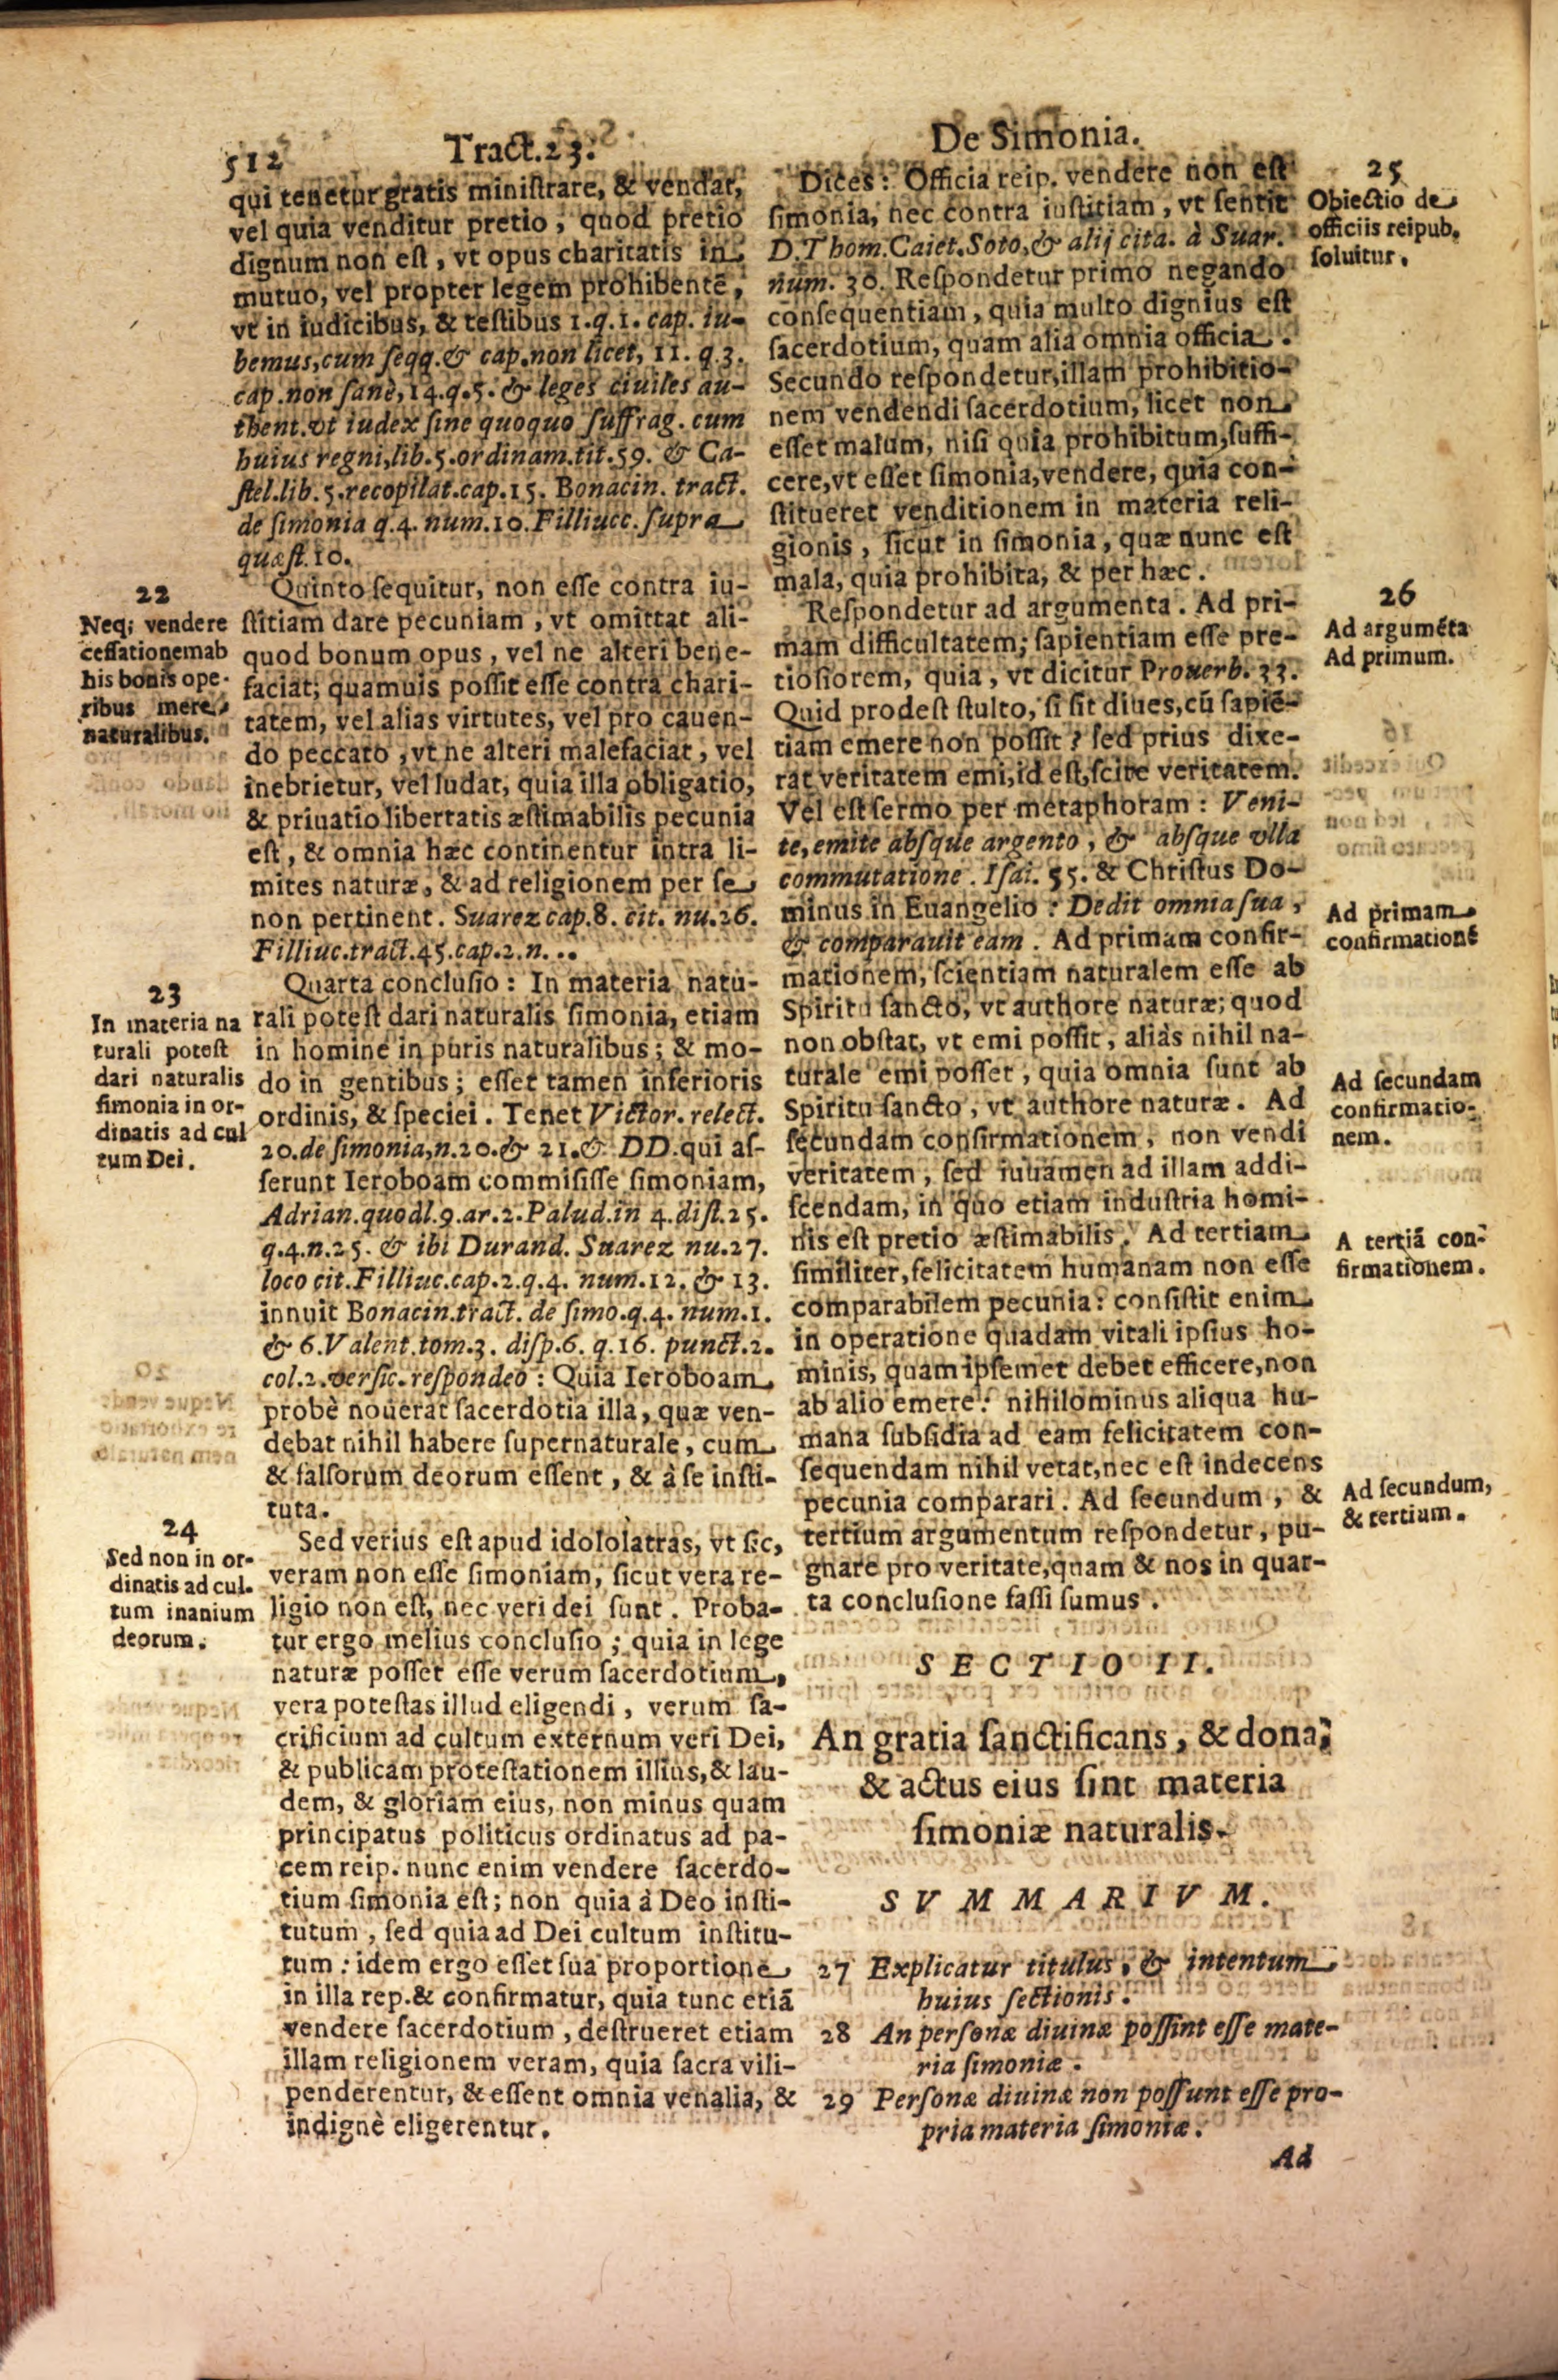 512
Tract.23.
De Simonia.
qui tenetur gratis miniſtrare, & vendat,
vel quia venditur pretio, quod pretio
dignum non eſt, vt opus charitatis in
mutuo, vel propter legem prohibentē,
vt in iudicibus, & teſtibus 1.q.1. cap. iu-
bemus,cum ſeqq.& cap.non licet, 11. q.3.
cap.non ſanè,14.q.5. & leges ciuiles au-
thent.vt iudex ſine quoquo ſuffrag. cum
huius regni,lib.5.ordinam.tit.59. & Ca-
ſtel.lib.5.recopilat.cap.15. Bonacin. tract.
de ſimonia q.4. num.10.Filliucc.ſupra
quæſt.10.
22
Neq; vendere
ceſſationem ab
his bonis ope-
ribus mere
naturalibus.
Quinto ſequitur, non eſſe contra iu-
ſtitiam dare pecuniam, vt omittat ali-
quod bonum opus, vel ne alteri bene-
faciat; quamuis poſſit eſſe contra chari-
tatem, vel alias virtutes, vel pro cauen-
do peccato, vt ne alteri malefaciat, vel
inebrietur, vel ludat, quia illa obligatio,
& priuatio libertatis æſtimabilis pecunia
eſt, & omnia hæc continentur intra li-
mites naturæ, & ad religionem per ſe
non pertinent. Suarez cap.8. cit. nu.26.
Filliuc.tract.45.cap.2.n. ..
23
In materia na
turali poteſt
dari naturalis
ſimonia in or-
dinatis ad cul
tum Dei.
Quarta concluſio: In materia natu-
rali poteſt dari naturalis ſimonia, etiam
in homine in puris naturalibus; & mo-
do in gentibus; eſſet tamen inferioris
ordinis, & ſpeciei. Tenet Victor. relect.
20.de ſimonia,n.20.& 21.& DD.qui aſ-
ſerunt Ieroboam commiſiſſe ſimoniam,
Adrian.quodl.9.ar.2.Palud.in 4.diſt.25.
q.4.n.25. & ibi Durand. Suarez nu.27.
loco cit.Filliuc.cap.2.q.4. num.12. & 13.
innuit Bonacin.tract. de ſimo.q.4. num.1.
& 6.Valent.tom.3. diſp.6. q.16. punct.2.
col.2.verſic.reſpondeo: Quia Ieroboam
probè nouerat ſacerdotia illa, quæ ven-
debat nihil habere ſupernaturale, cum
& falſorum deorum eſſent, & à ſe inſti-
tuta.
24
Sed non in or-
dinatis ad cul-
tum inanium
deorum.
Sed verius eſt apud idololatras, vt ſic,
veram non eſſe ſimoniam, ſicut vera re-
ligio non eſt, nec veri dei ſunt. Proba-
tur ergo melius concluſio; quia in lege
naturæ poſſet eſſe verum ſacerdotium,
vera poteſtas illud eligendi, verum ſa-
crificium ad cultum externum veri Dei,
& publicam proteſtationem illius,& lau-
dem, & gloriam eius, non minus quam
principatus politicus ordinatus ad pa-
cem reip. nunc enim vendere ſacerdo-
tium ſimonia eſt; non quia à Deo inſti-
tutum, ſed quia ad Dei cultum inſtitu-
tum: idem ergo eſſet ſua proportione
in illa rep.& confirmatur, quia tunc etiā
vendere ſacerdotium, deſtrueret etiam
illam religionem veram, quia ſacra vili-
penderentur, & eſſent omnia venalia, &
indignè eligerentur.
25
Obiectio de
officiis reipub.
ſoluitur.
Dices: Officia reip. vendere non eſt
ſimonia, nec contra iuſtitiam, vt ſentit
D.Thom.Caiet.Soto,& alij cita. à Suar.
num. 30. Reſpondetur primo negando
conſequentiam, quia multo dignius eſt
ſacerdotium, quam alia omnia officia.
Secundo reſpondetur,illam prohibitio-
nem vendendi ſacerdotium, licet non
eſſet malum, niſi quia prohibitum,ſuffi-
cere,vt eſſet ſimonia,vendere, quia con-
ſtitueret venditionem in materia reli-
gionis, ſicut in ſimonia, quæ nunc eſt
mala, quia prohibita, & per hæc.
26
Ad argumēta
Ad primum.
Reſpondetur ad argumenta. Ad pri-
mam difficultatem; ſapientiam eſſe pre-
tioſiorem, quia, vt dicitur Prouerb. 33.
Quid prodeſt ſtulto, ſi ſit diues,cū ſapiē-
tiam emere non poſſit? ſed prius dixe-
rat veritatem emi,id eſt,ſcire veritatem.
Vel eſt ſermo per metaphoram: Veni-
te,emite abſque argento, & abſque vlla
commutatione. Iſai. 55. & Chriſtus Do-
minus in Euangelio: Dedit omnia ſua,
& comparauit eam. Ad primam confir-
mationem, ſcientiam naturalem eſſe ab
Spiritu ſancto, vt authore naturæ; quod
non obſtat, vt emi poſſit, aliàs nihil na-
turale emi poſſet, quia omnia ſunt ab
Spiritu ſancto, vt authore naturæ. Ad
ſecundam confirmationem, non vendi
veritatem, ſed iuuamen ad illam addi-
ſcendam, in quo etiam induſtria homi-
nis eſt pretio æſtimabilis. Ad tertiam
ſimiliter,felicitatem humanam non eſſe
comparabilem pecunia: conſiſtit enim
in operatione quadam vitali ipſius ho-
minis, quam ipſemet debet efficere,non
ab alio emere: nihilominus aliqua hu-
mana ſubſidia ad eam felicitatem con-
ſequendam nihil vetat,nec eſt indecens
pecunia comparari. Ad ſecundum, &
tertium argumentum reſpondetur, pu-
gnare pro veritate,quam & nos in quar-
ta concluſione faſſi ſumus.
Ad primam
confirmationē
Ad ſecundam
confirmatio-
nem.
A tertiā con-
firmationem.
Ad ſecundum,
& tertium.
SECTIO II.
An gratia ſanctificans, & dona,
& actus eius ſint materia
ſimoniæ naturalis.
SVMMARIVM.
27 Explicatur titulus, & intentum
huius ſectionis.
28 An perſonæ diuinæ poſſint eſſe mate-
ria ſimoniæ.
29 Perſonæ diuinæ non poſſunt eſſe pro-
pria materia ſimoniæ.
Ad